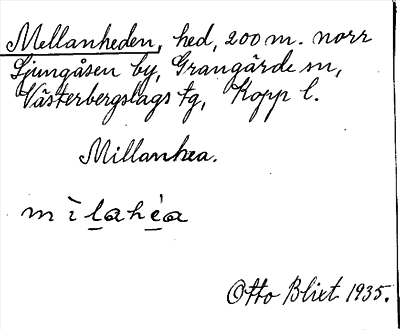 Mellanheden, hed, 200 m. norr
Ljungåsen by, Grangärde sn,
Västerbergslags tg, Kopp l.
Millanhea.
m ì l̲a h é̲a
Otto Blixt 1935.